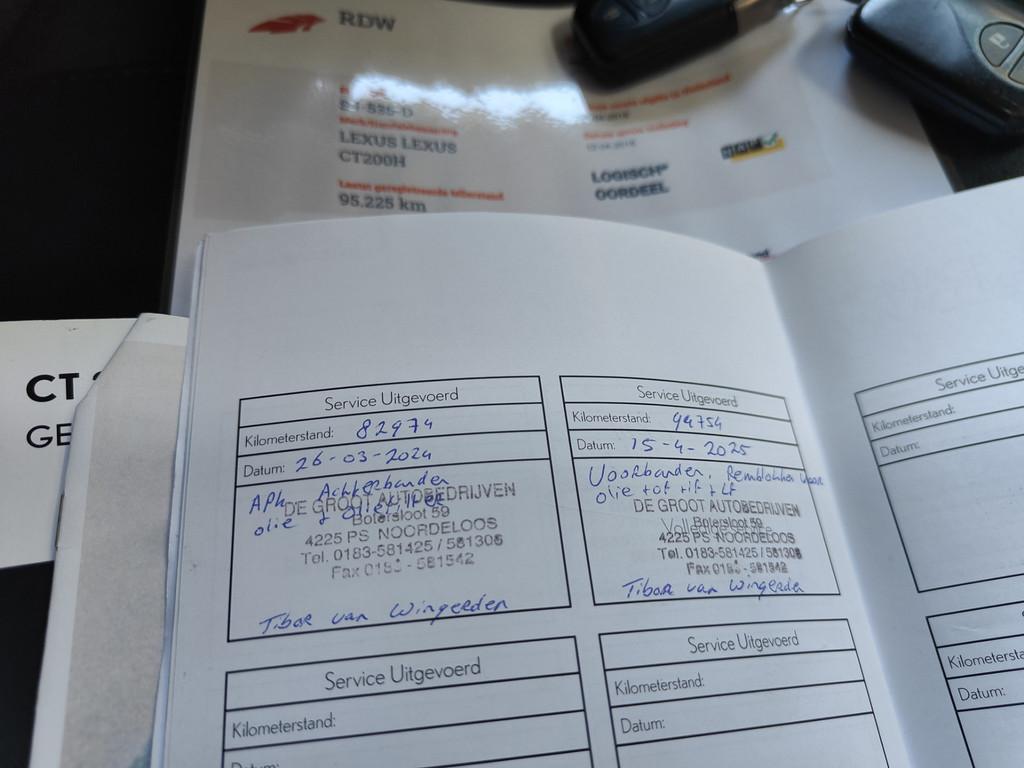 RDW
LEXUS LEXUS
CT200H
95.225 km
LOGISCH
OORDEEL
CT
GE
Service Uitgevoerd
Kilometerstand: 82974
Datum: 26-03-2024
APK Achterbanden
olie + oliefilter
DE GROOT AUTOBEDRIJVEN
Botersloot 59
4225 PS NOORDELOOS
Tel. 0183-581425 / 581306
Fax 0183 - 581542
Tibor van Wingerden
Service Uitgevoerd
Kilometerstand: 94754
Datum: 15-4-2025
Voorbanden, Remblokken voor
olie + of + if + Lf
DE GROOT AUTOBEDRIJVEN
Botersloot 59
4225 PS NOORDELOOS
Tel. 0183-581425 / 581306
Fax 0183 - 581542
Tibor van Wingerden
Service Uitge
Kilometerstand:
Datum:
Service Uitgevoerd
Kilometerstand:
Datum:
Service Uitgevoerd
Kilometerstand:
Datum:
Kilometersta
Datum: